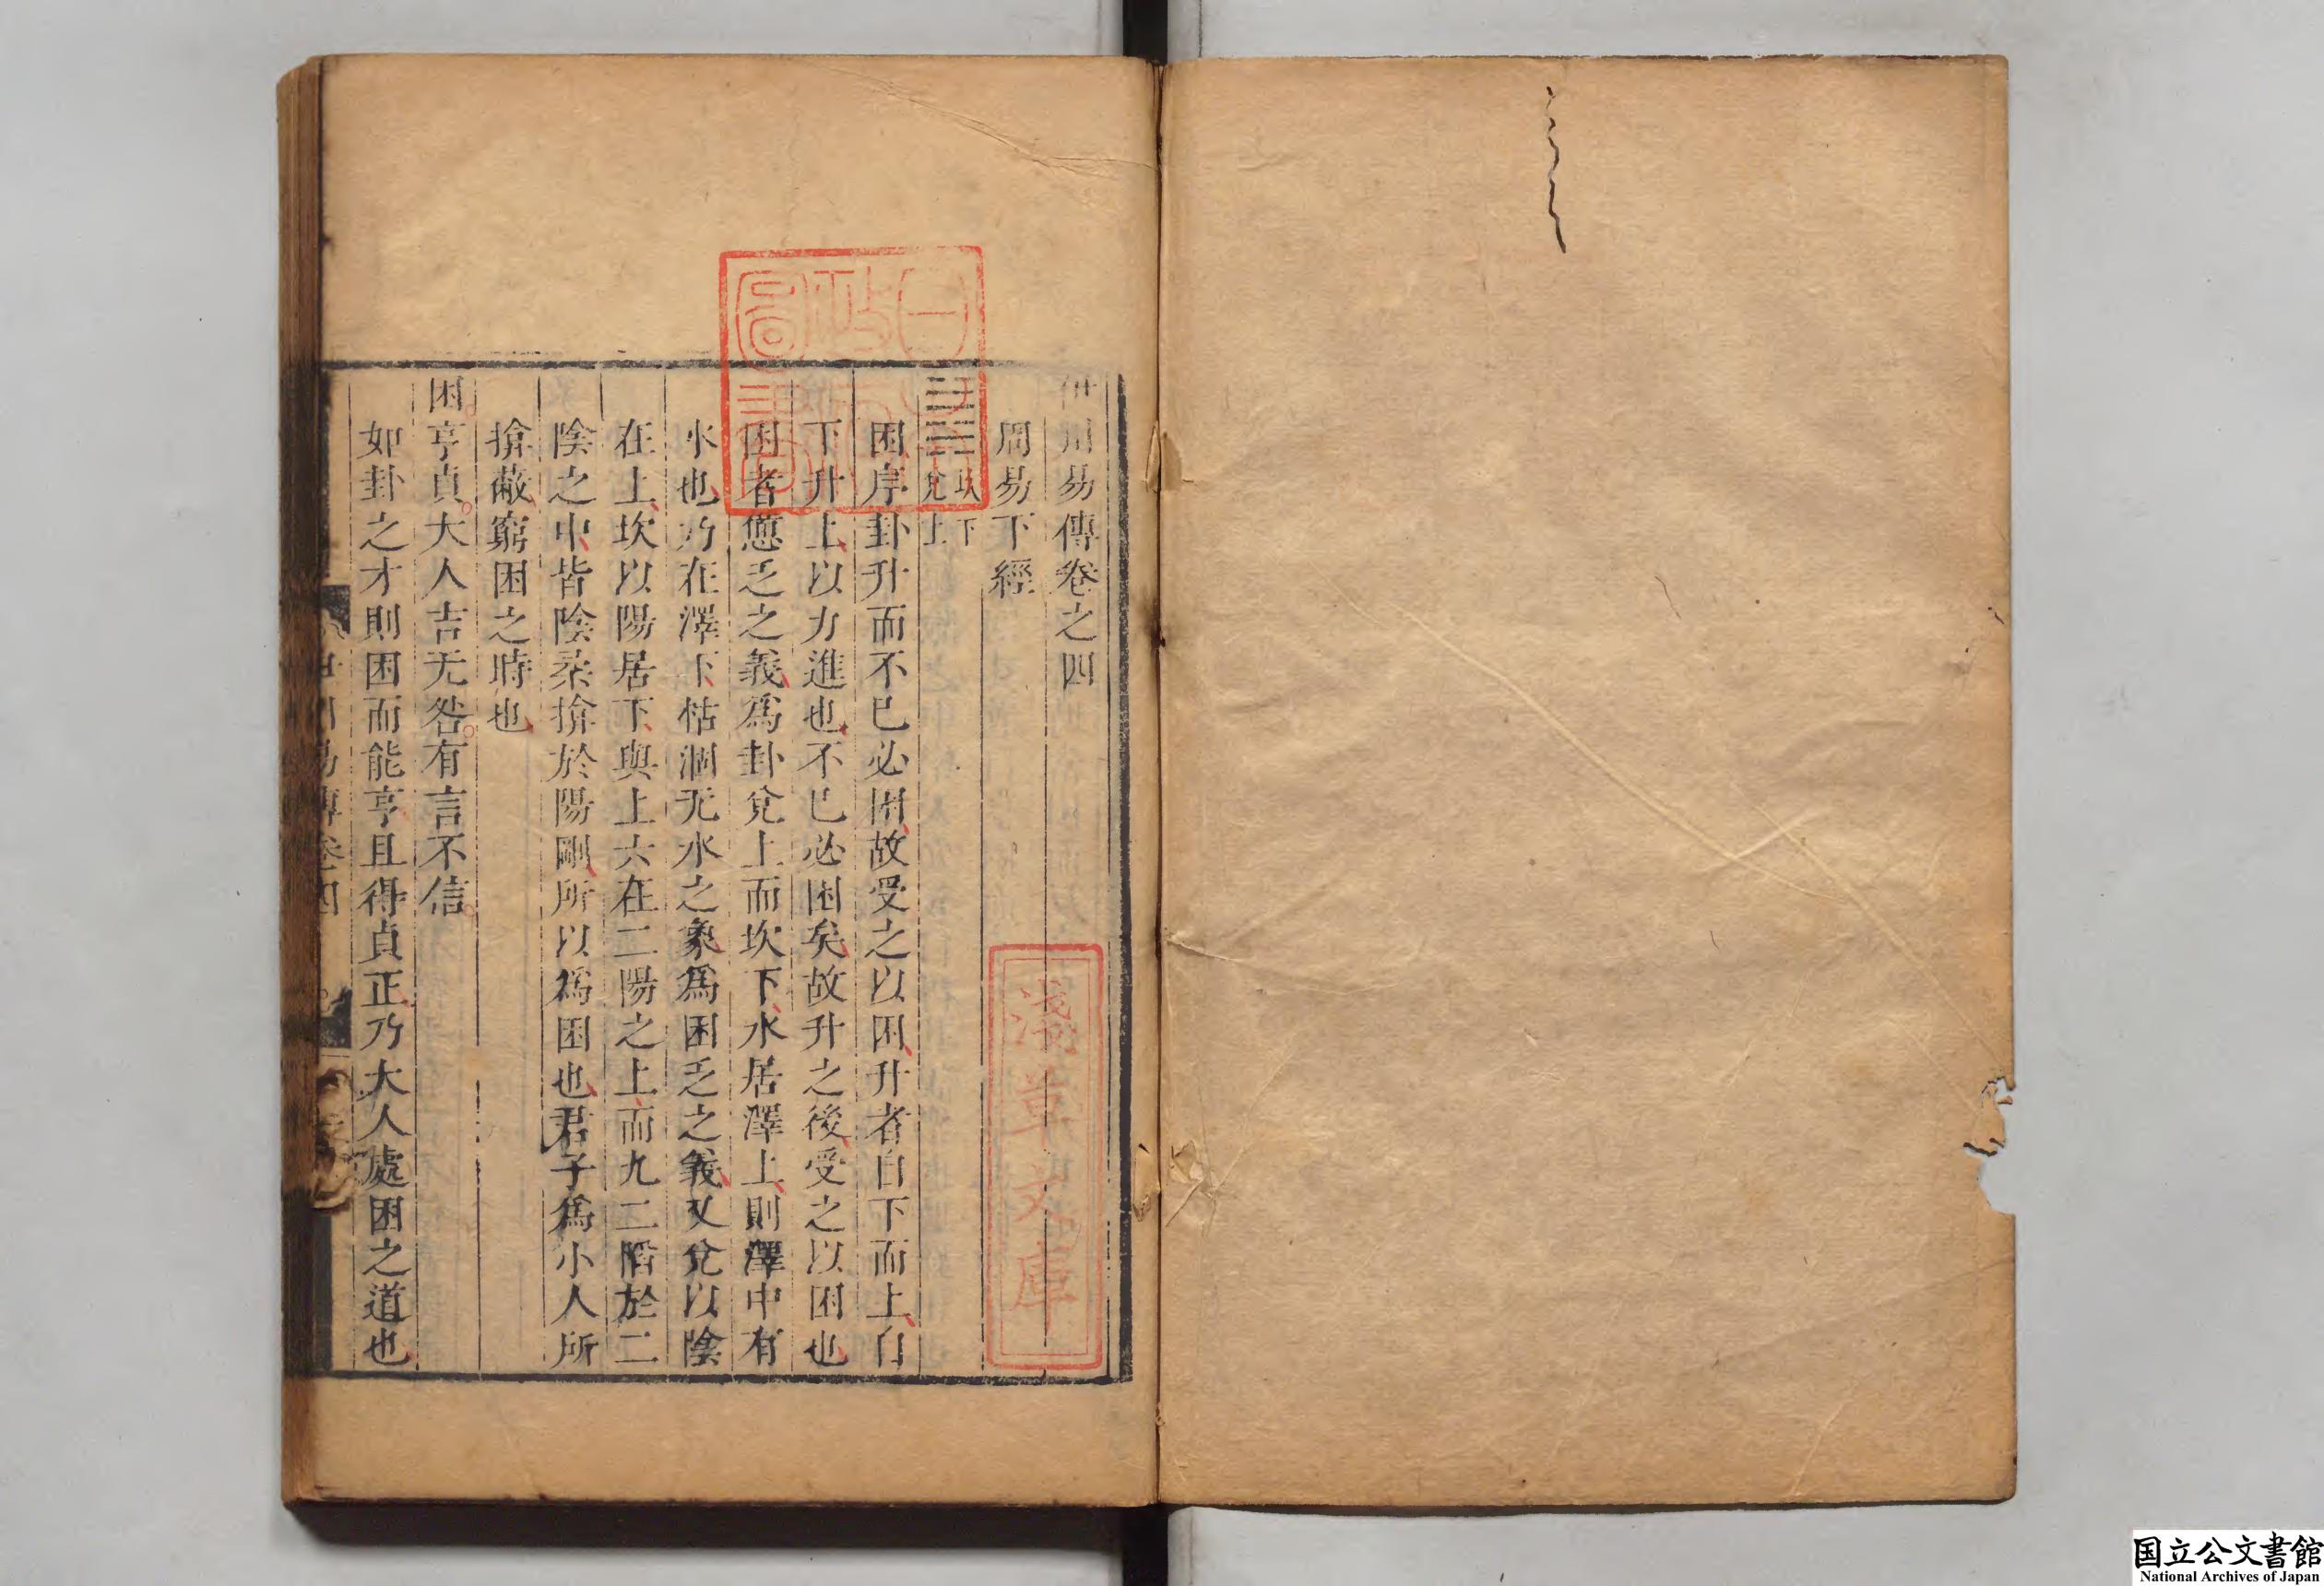 伊川易傳卷之四
周易下經
坎下
兌上
困序卦升而不已必困故受之以困升者自下而上自
下升上以力進也不已必困矣故升之後受之以困也
困者憊乏之義爲卦兌上而坎下水居澤上則澤中有
水也乃在澤下枯涸无水之象爲困乏之義又兌以陰
在上坎以陽居下與上六在二陽之上而九二陷於二
陰之中皆陰柔揜於陽剛所以爲困也君子爲小人所
揜蔽窮困之時也
困亨貞大人吉无咎有言不信
如卦之才則困而能亨且得貞正乃大人處困之道也
伊川易傳卷四
淺草文庫
日本政府圖書
国立公文書館
National Archives of Japan